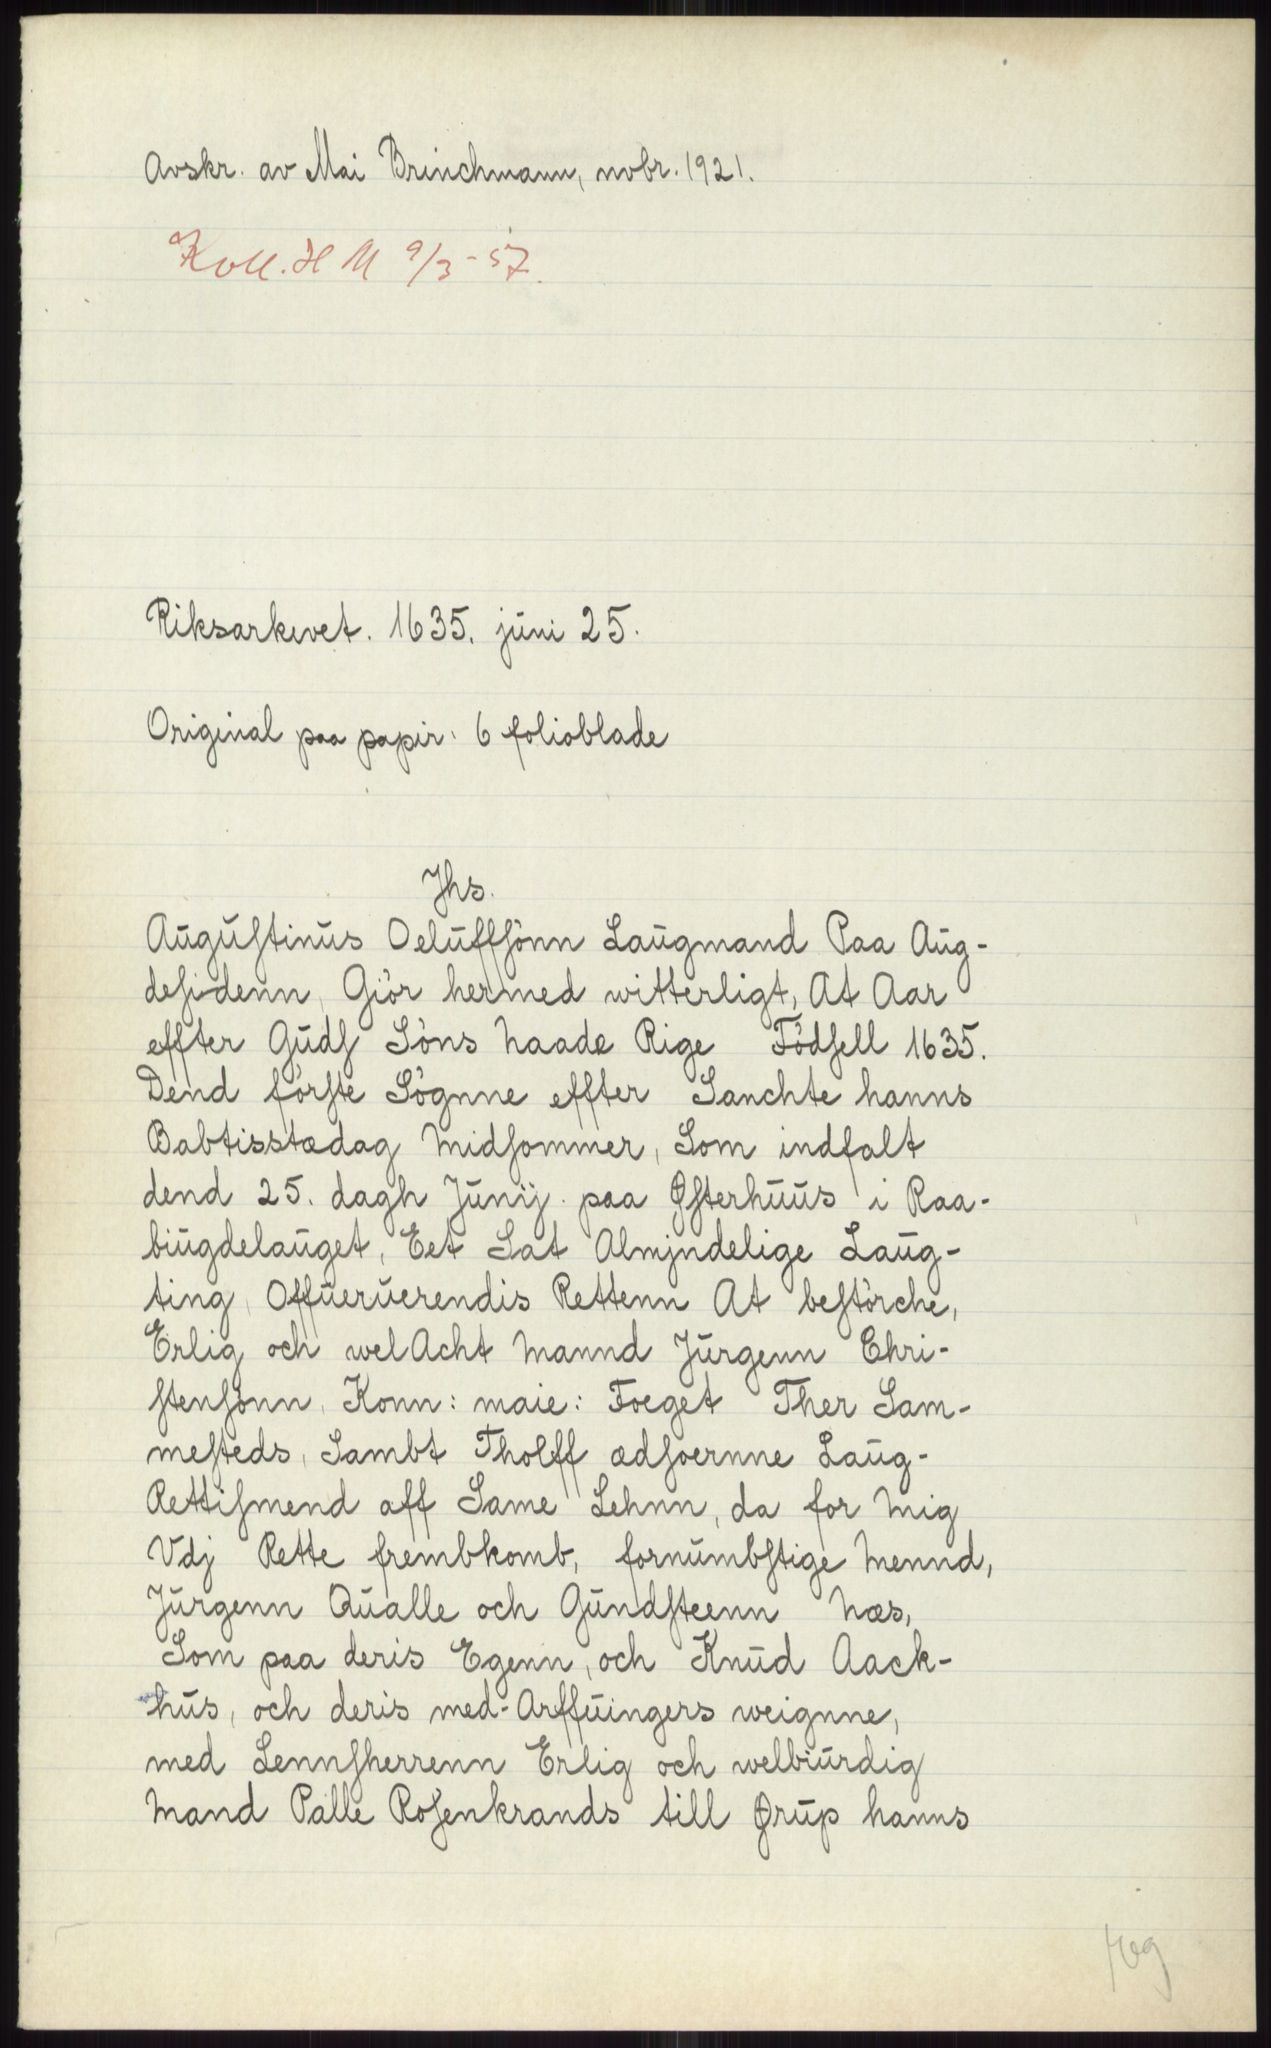 Avskr. av Mai Brinchmann, novbr. 1921.
Koll. H M 9/3-57.
Riksarkivet. 1635. juni 25.
Original paa papir. 6 folioblade
Jhs.
Augustinus Oeluffsönn Laugmand Paa Aug-
desidenn, Giör hermed witterligt, At Aar
effter Guds Söns Naade Rige Födsell 1635.
Dend förste Sögnne effter Sanchte hanns
Babtisstædag Midsommer, Som indfalt
dend 25. dagh Junij paa Østerhuus i Raa-
biugdelauget, Eet Sat Almjndelige Laug-
ting, Offueruerendis Rettenn At bestörche,
Erlig och wel Acht Mannd Jurgenn Chri-
stensönn, Konn: maie: Foeget Ther Sam-
mesteds, Sambt Tholff ædsoernne Laug-
Rettismend aff Same Lehnn, da for Mig
Vdj Rette frembkomb, fornumbstige Mennd,
Jurgenn Qualle och Gundsteenn Næs,
Som paa deris Egenn, och Knud Aack-
hus, och deris med-Arffuingers weignne,
med Lennsherrenn Erlig och welbiurdig
Mand Palle Rosenkrands till Ørup hanns